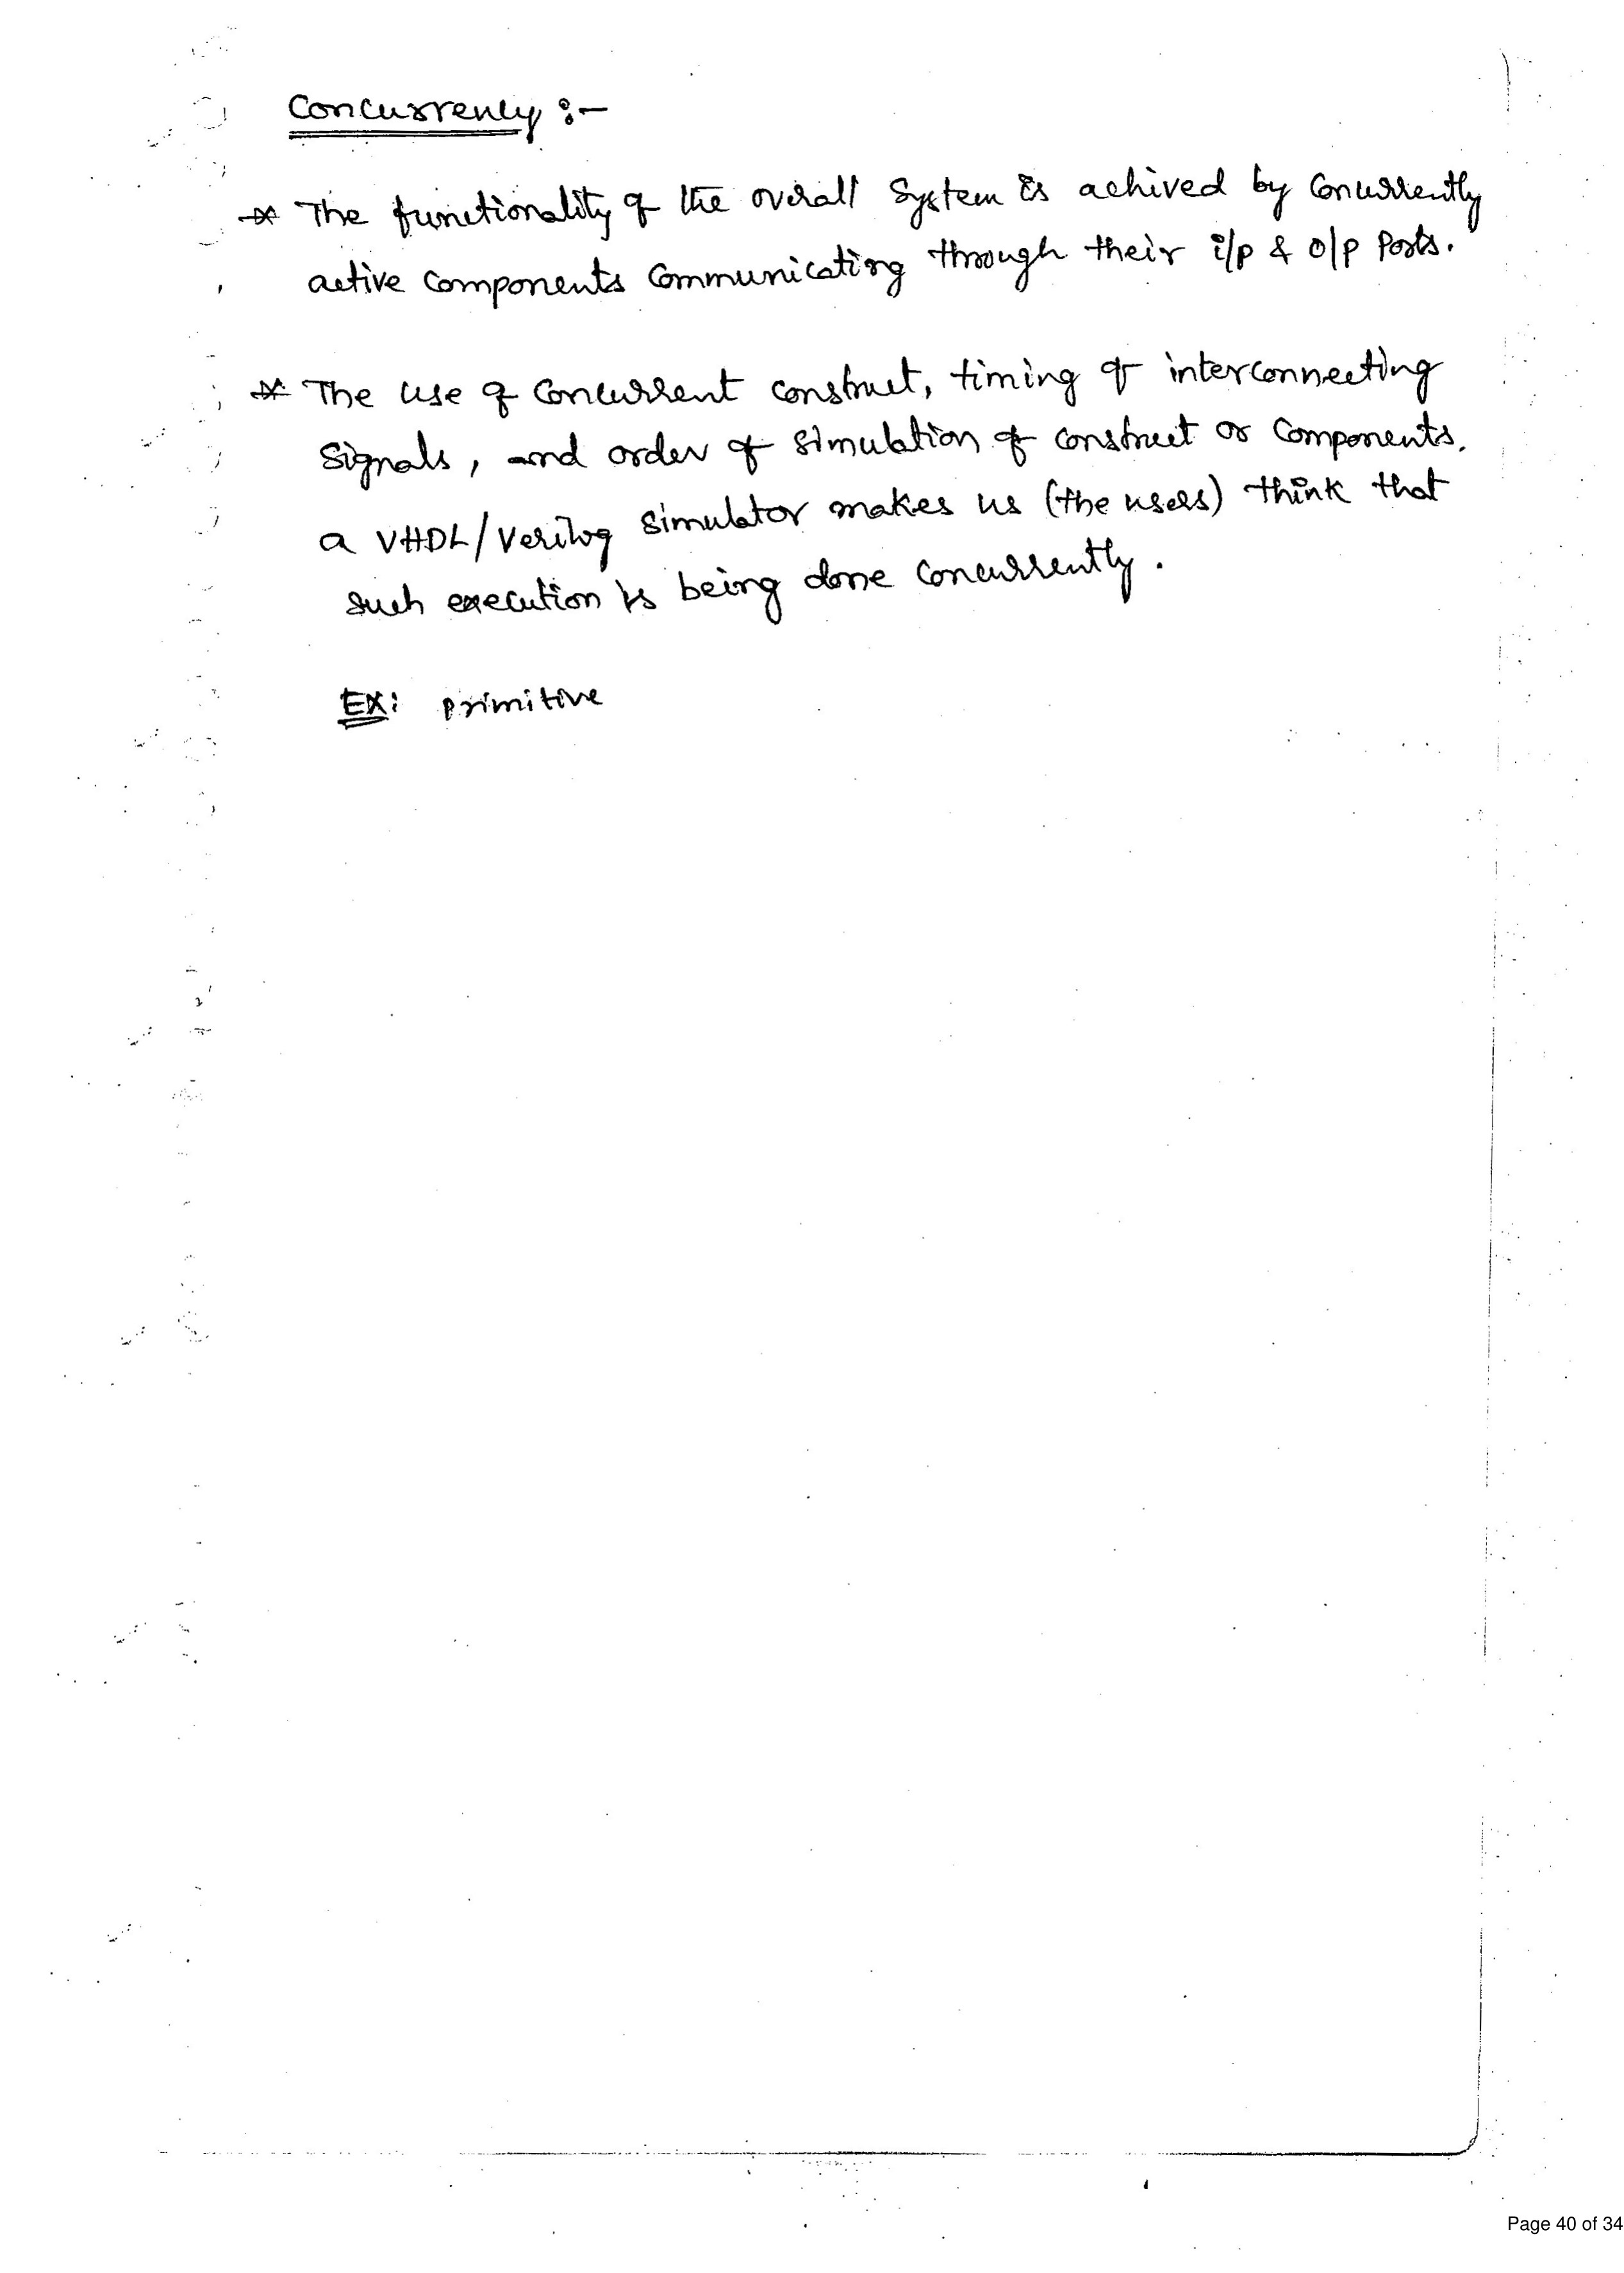 Concurrency :-
* The functionality of the overall system is achived by Concurrently
active components communicating through their i/p & o/p Ports.
* The use of Concurrent construct, timing of interconnecting
signals, and order of simulation of construct or components.
a VHDL/Verilog simulator makes us (the users) think that
such execution is being done concurrently.
EX: primitive
Page 40 of 34